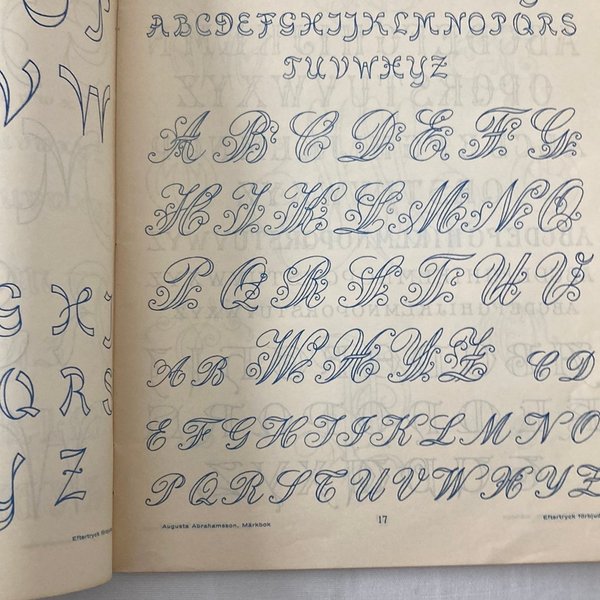 V W
G H
Q R S
Y Z
Eftertryck
ABCDEFGHIJKLMNOPQRS
TUVWXYZ
A B C D E F G
H I K L M N O
P Q R S T U V
A B W X Y Z C D
E F G H I J K L M N O
P Q R S T U V W X Y Z
Augusta Abrahamsson, Märkbok
17
Eftertryck